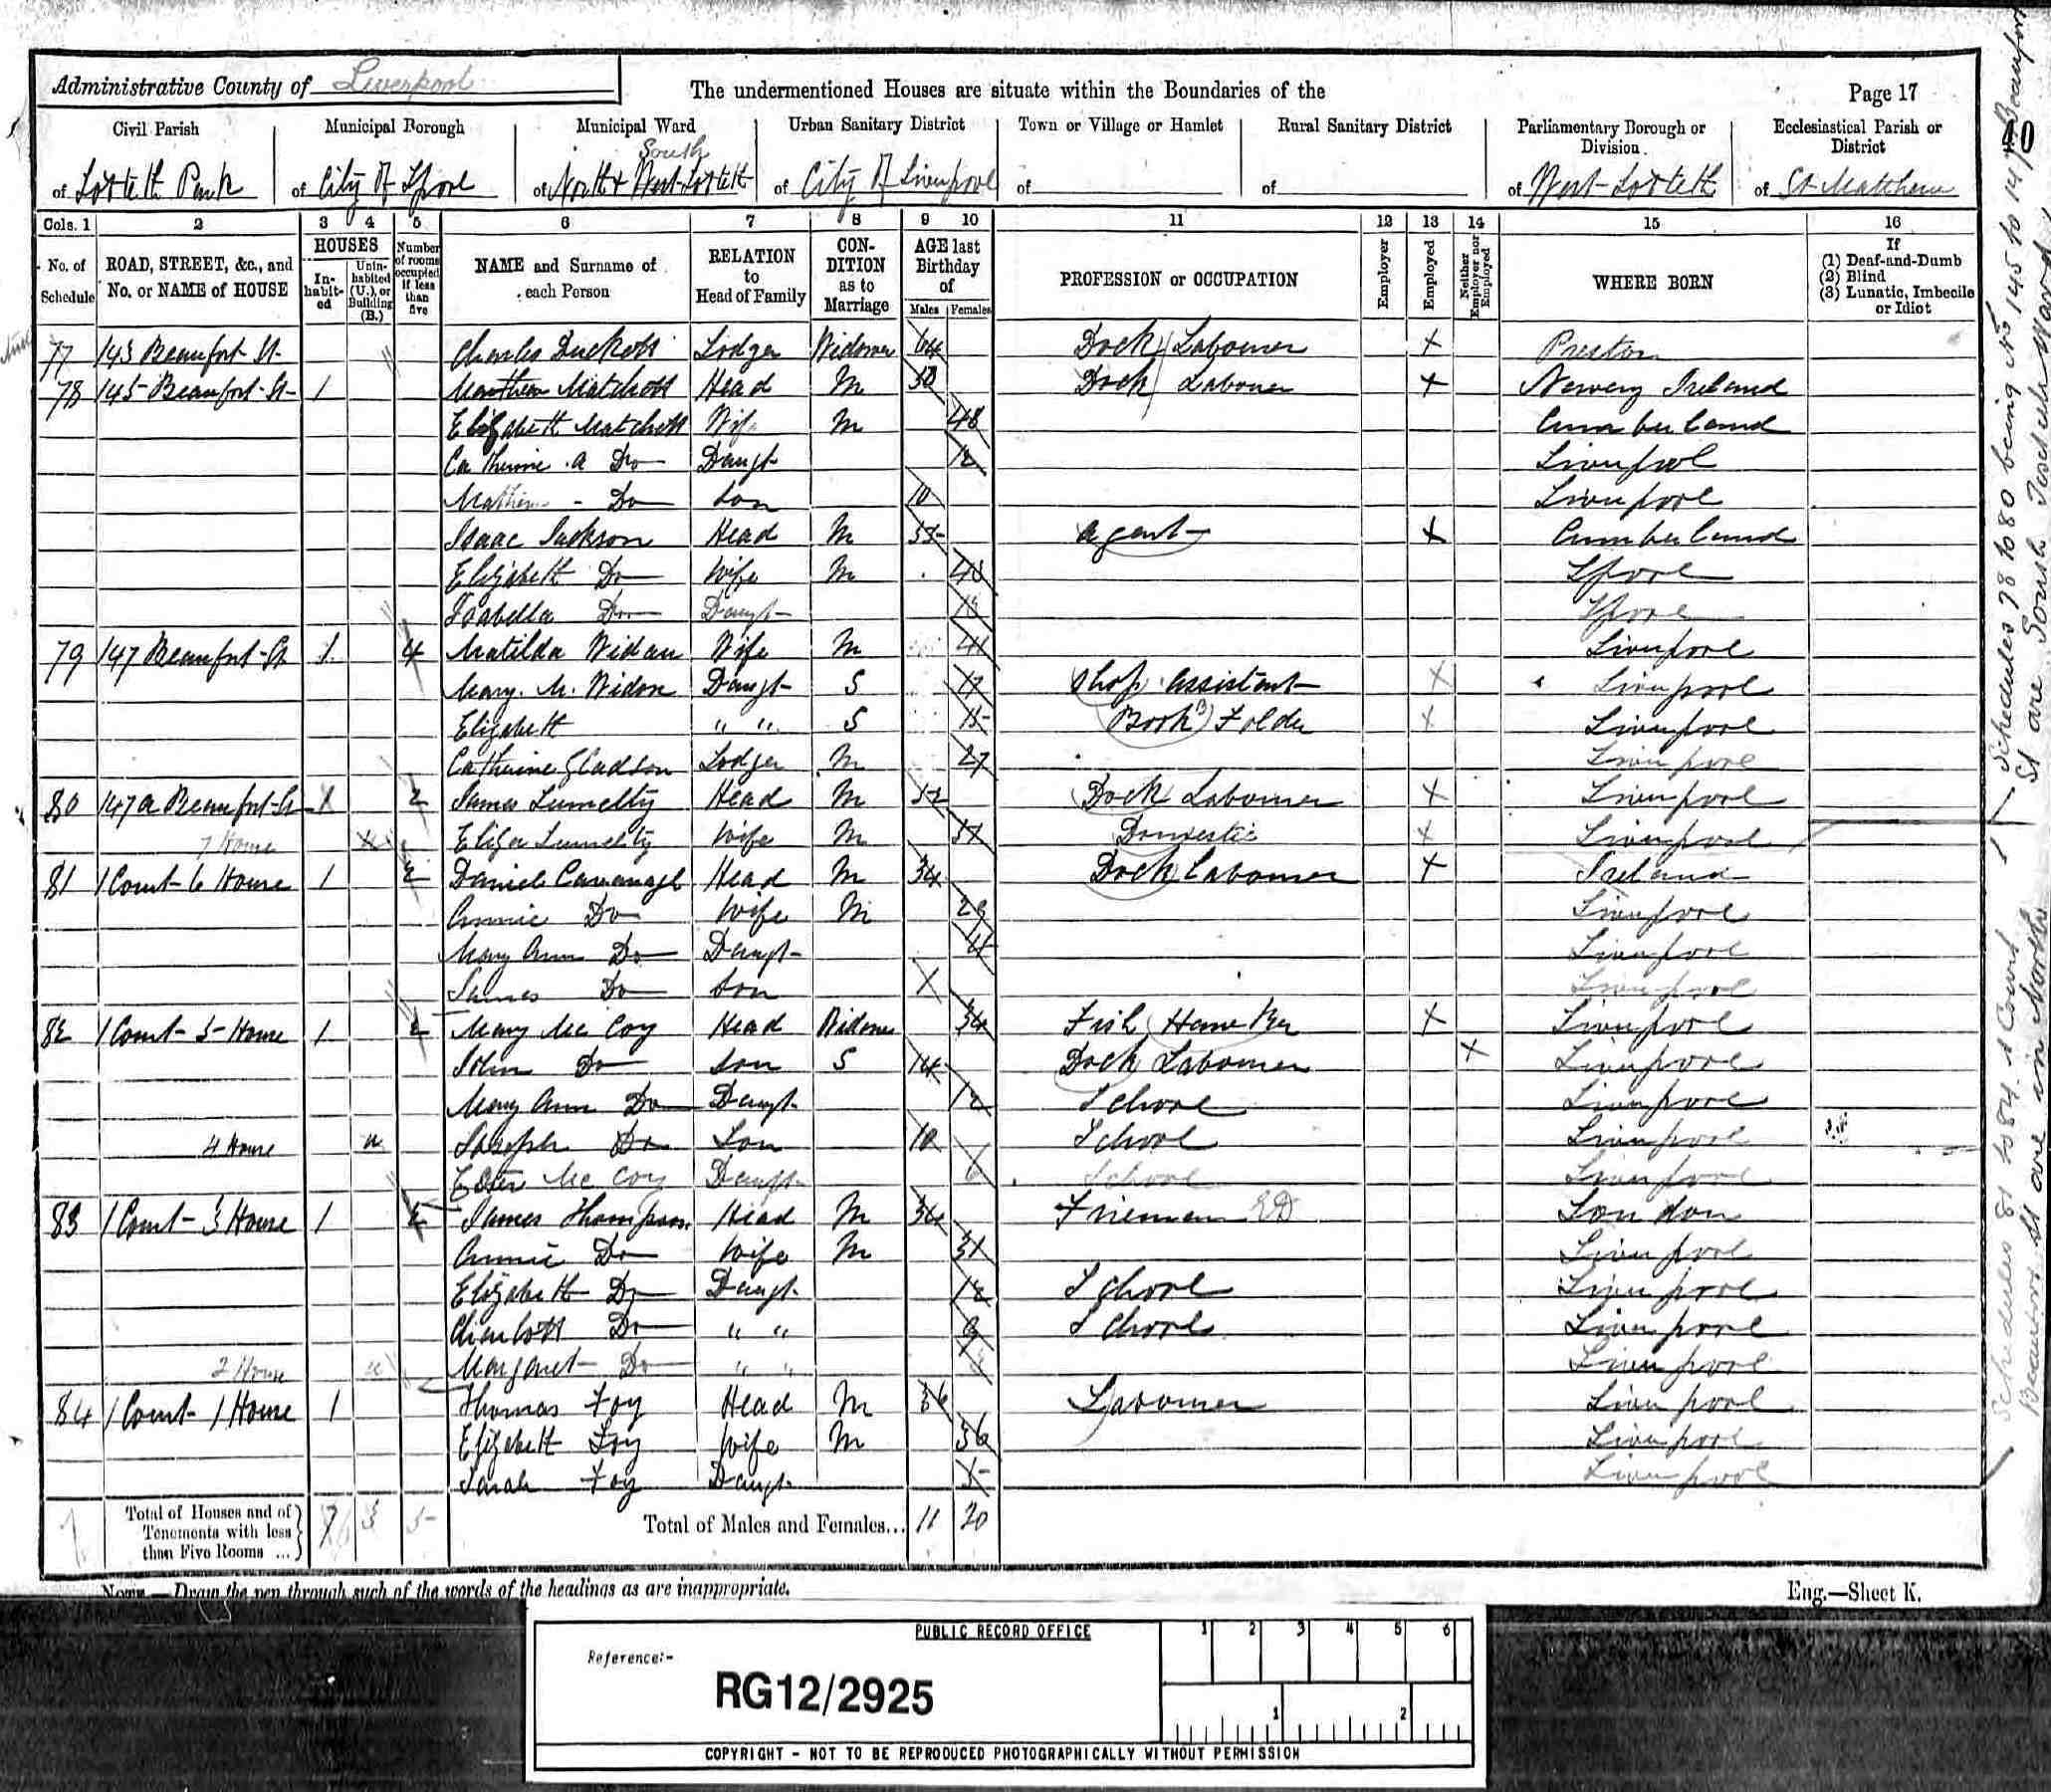 Administrative County of Liverpool
The undermentioned Houses are situate within the Boundaries of the
Page 17
Civil Parish
Municipal Borough
Municipal Ward
Urban Sanitary District
Town or Village or Hamlet
Rural Sanitary District
Parliamentary Borough or Division
Ecclesiastical Parish or District
40
South
of Toxteth Park
of City of Lpool
of North & West Toxteth
of City of Liverpool
of
of
of West Toxteth
of St Matthew
Cols. 1 2 3 4 5 6 7 8 9 10 11 12 13 14 15 16
No. of Schedule
ROAD, STREET, &c., and No. or NAME of HOUSE
HOUSES
Inhabited
Uninhabited (U.), or Building (B.)
Number of rooms occupied if less than five
NAME and Surname of each Person
RELATION to Head of Family
CONDITION as to Marriage
AGE last Birthday of
Males
Females
PROFESSION or OCCUPATION
Employer
Employed
Neither Employer nor Employed
WHERE BORN
If
(1) Deaf-and-Dumb
(2) Blind
(3) Lunatic, Imbecile or Idiot
77 143 Beaufort St Charles Duckett Lodger Widower 64 Dock Labourer X Preston
78 145 Beaufort St 1 Matthew Matchett Head M Dock Labourer X Newery Ireland
Elizabeth Matchett Wife M 48 Cumberland
Catherine A Do Daugt 12 Liverpool
Mathew Do Son 10 Liverpool
Isaac Jackson Head M 55 Agent X Cumberland
Elizabeth Do Wife M Lpool
Isabella Do Daugt Lpool
79 147 Beaufort St 1 4 Matilda Widan Wife M 41 Liverpool
Mary. M. Widon Daugt S 17 Shop Assistant X Liverpool
Elizabeth " " S 15 Book Folder X Liverpool
Catherine Gladson Lodger M 27 Liverpool
80 147a Beaufort St X 2 James Lumelty Head M Dock Labourer X Liverpool
7 House Eliza Lumelty Wife M 37 Domestic X Liverpool
81 1 Court 6 House 1 2 Daniel Cavanagh Head M 34 Dock Labourer X Ireland
Annie Do Wife M 29 Liverpool
Mary Ann Do Daugt 4 Liverpool
James Do Son Liverpool
82 1 Court 5 House 1 2 Mary Mc Coy Head Widow 34 Fish X Liverpool
John Do Son S 14 Dock Labourer X Liverpool
Mary Ann Do Daugt 12 School Liverpool
4 House u Joseph Do Son 10 School Liverpool
Mc Coy Daugt 6 School Liverpool
83 1 Court 3 House 1 2 James Thompson Head M 34 Fireman London
Annie Do Wife M 31 Liverpool
Elizabeth Do Daugt 12 School Liverpool
Charlott Do " " 9 School Liverpool
2 House u Margaret Do " " Liverpool
84 1 Court 1 House 1 Thomas Foy Head M 36 Labourer Liverpool
Elizabeth Foy Wife M 36 Liverpool
Sarah Foy Daugt 5 Liverpool
Total of Houses and of Tenements with less than Five Rooms ... 7 3 5
Total of Males and Females... 11 20
NOTE.—Draw the pen through such of the words of the headings as are inappropriate.
Eng.—Sheet K.
Schedules 78 to 80 being No 145 to 147a Beaufort
St are South Toxteth Ward
Schedules 81 to 84. 1 Court
Beaufort St are in North
PUBLIC RECORD OFFICE
Reference:-
RG12/2925
1 2 3 4 5 6
1 2
COPYRIGHT - NOT TO BE REPRODUCED PHOTOGRAPHICALLY WITHOUT PERMISSION